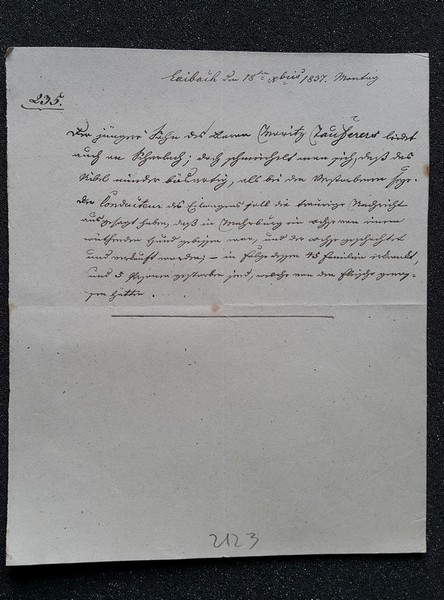 Laibach den 18ten xbris 1837. Montag
235.
Der jüngere Sohn des Baron Moritz Taufferer leidet
auch an Scharlach; doch schmeichelt man sich, daß das
Übel minder bösartig, als bei den Verstorbenen seye.
Der Conducteur des Eilwagens soll die traurige Nachricht
ausgesagt haben, daß in Marburg ein Ochse von einem
wüthenden Hund gebissen war, und der Ochse geschlachtet
und verkauft worden; – in Folge dessen 45 Familien erkrankt,
und 5 Personen gestorben sind, welche von dem Fleische genos-
sen hatten.
2123